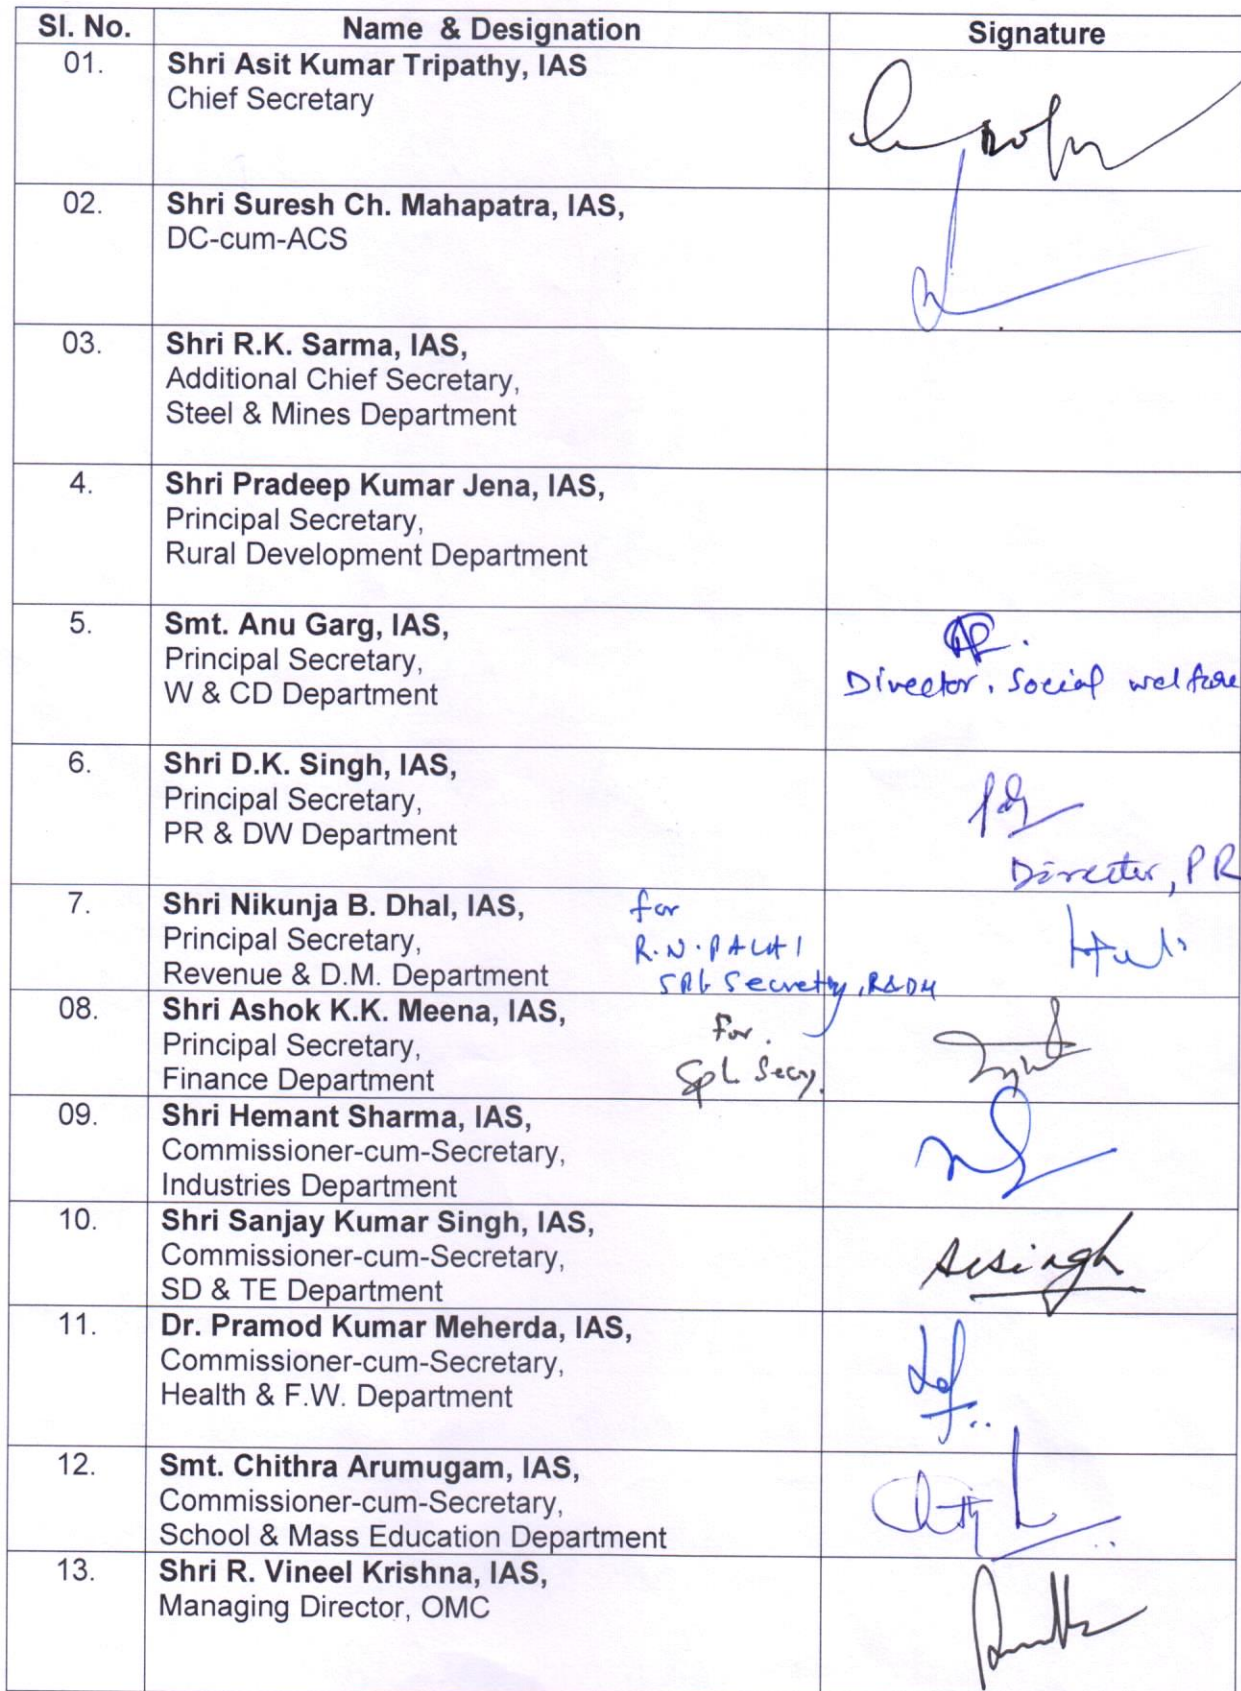 Sl. No. Name & Designation Signature
01. Shri Asit Kumar Tripathy, IAS
Chief Secretary
02. Shri Suresh Ch. Mahapatra, IAS,
DC-cum-ACS
03. Shri R.K. Sarma, IAS,
Additional Chief Secretary,
Steel & Mines Department
4. Shri Pradeep Kumar Jena, IAS,
Principal Secretary,
Rural Development Department
5. Smt. Anu Garg, IAS,
Principal Secretary,
W & CD Department Director, Social welfare
6. Shri D.K. Singh, IAS,
Principal Secretary,
PR & DW Department
Director, PR
7. Shri Nikunja B. Dhal, IAS, for
Principal Secretary, R.N.
Revenue & D.M. Department Secretary, R&DM
08. Shri Ashok K.K. Meena, IAS,
Principal Secretary, For.
Finance Department Spl. Secy.
09. Shri Hemant Sharma, IAS,
Commissioner-cum-Secretary,
Industries Department
10. Shri Sanjay Kumar Singh, IAS,
Commissioner-cum-Secretary,
SD & TE Department
11. Dr. Pramod Kumar Meherda, IAS,
Commissioner-cum-Secretary,
Health & F.W. Department
12. Smt. Chithra Arumugam, IAS,
Commissioner-cum-Secretary,
School & Mass Education Department
13. Shri R. Vineel Krishna, IAS,
Managing Director, OMC